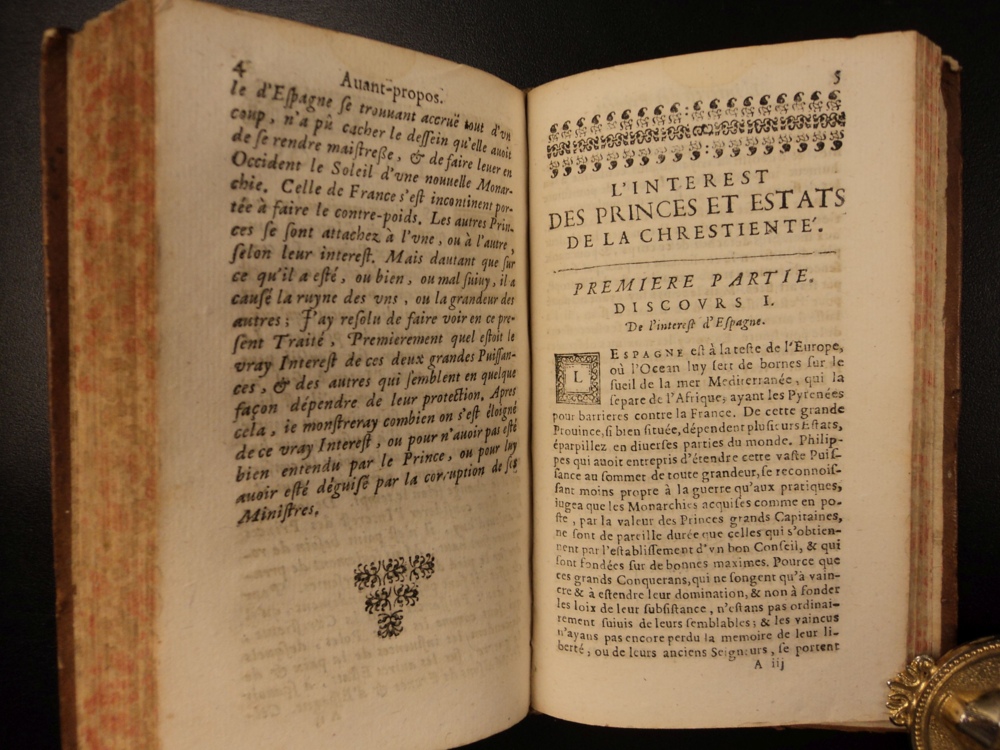 4
Auant-propos.
le d'Eſpagne ſe trouuant accruë tout d'vn
coup, n'a pû cacher le deſſein qu'elle auoit
de ſe rendre maiſtreſſe, & de faire leuer en
Occident le Soleil d'vne nouuelle Monar-
chie. Celle de France s'eſt incontinent por-
tée à faire le contre-poids. Les autres Prin-
ces ſe ſont attachez à l'vne, ou à l'autre,
ſelon leur intereſt. Mais dautant que ſur
ce qu'il a eſté, ou bien, ou mal ſuiuy, il a
cauſé la ruyne des vns, ou la grandeur des
autres; J'ay reſolu de faire voir en ce pre-
ſent Traité, Premierement quel eſtoit le
vray Intereſt de ces deux grandes Puiſſan-
ces, & des autres qui ſemblent en quelque
façon dépendre de leur protection. Apres
cela, ie monſtreray combien on s'eſt éloigné
de ce vray Intereſt, ou pour n'auoir pas eſté
bien entendu par le Prince, ou pour luy
auoir eſté déguiſé par la corruption de ſes
Miniſtres.
5
L'INTEREST
DES PRINCES ET ESTATS
DE LA CHRESTIENTE'.
PREMIERE PARTIE.
DISCOVRS I.
De l'intereſt d'Eſpagne.
L ESPAGNE eſt à la teſte de l'Europe,
où l'Ocean luy ſert de bornes ſur le
ſueil de la mer Mediterranée, qui la
ſepare de l'Afrique, ayant les Pyrenées
pour barrieres contre la France. De cette grande
Prouince, ſi bien ſituée, dépendent pluſieurs Eſtats,
éparpillez en diuerſes parties du monde. Philip-
pes qui auoit entrepris d'étendre cette vaſte Puiſ-
ſance au ſommet de toute grandeur, ſe reconnoiſ-
ſant moins propre à la guerre qu'aux pratiques,
iugea que les Monarchies acquiſes comme en po-
ſte, par la valeur des Princes grands Capitaines,
ne ſont de pareille durée que celles qui s'obtien-
nent par l'eſtabliſſement d'vn bon Conſeil, & qui
ſont fondées ſur de bonnes maximes. Pource que
ces grands Conquerans, qui ne ſongent qu'à vain-
cre & à eſtendre leur domination, & non à fonder
les loix de leur ſubſiſtance, n'eſtans pas ordinai-
rement ſuiuis de leurs ſemblables; & les vaincus
n'ayans pas encore perdu la memoire de leur li-
berté, ou de leurs anciens Seigneurs, ſe portent
A iij